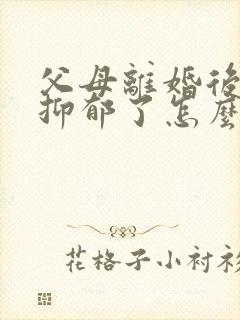 父母離婚後
抑郁了怎麼
花格子小衬衫